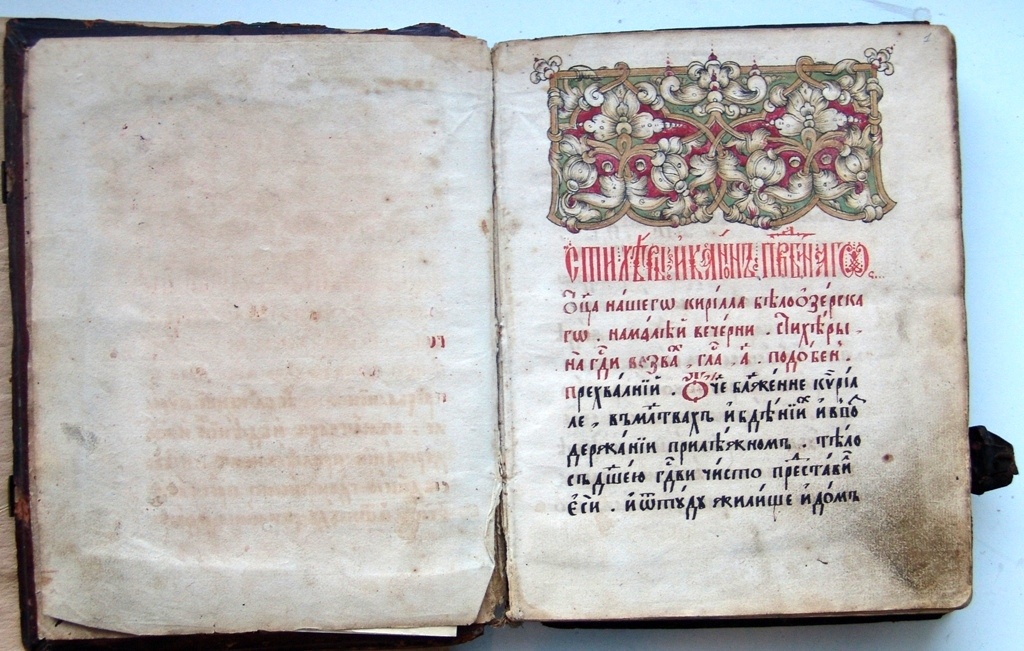 Стихѣры, и канѡнъ, прпⷣбнагѡ
Ѻца нашегѡ кирілла бѣлоѻзерска
гѡ . намалѣй вечерни . Стихѣры .
на гдⷭ҇и возваⷯ , глаⷭ҇ . а҃ . подобен .
Прехвалній . Ѻ҆́че блаⷤенне кѷріл
ле , въмлтⷡ҇ахъ и҆бдѣ́нїи и҆въпоⷥ
держа́нїи прилѣ́жномъ . тѣ́ло
съдш҃ею гдⷭ҇ви чи́сто преⷣстави
є҆сѝ . и҆ѿту́дꙋ жили́ще и҆до́мъ